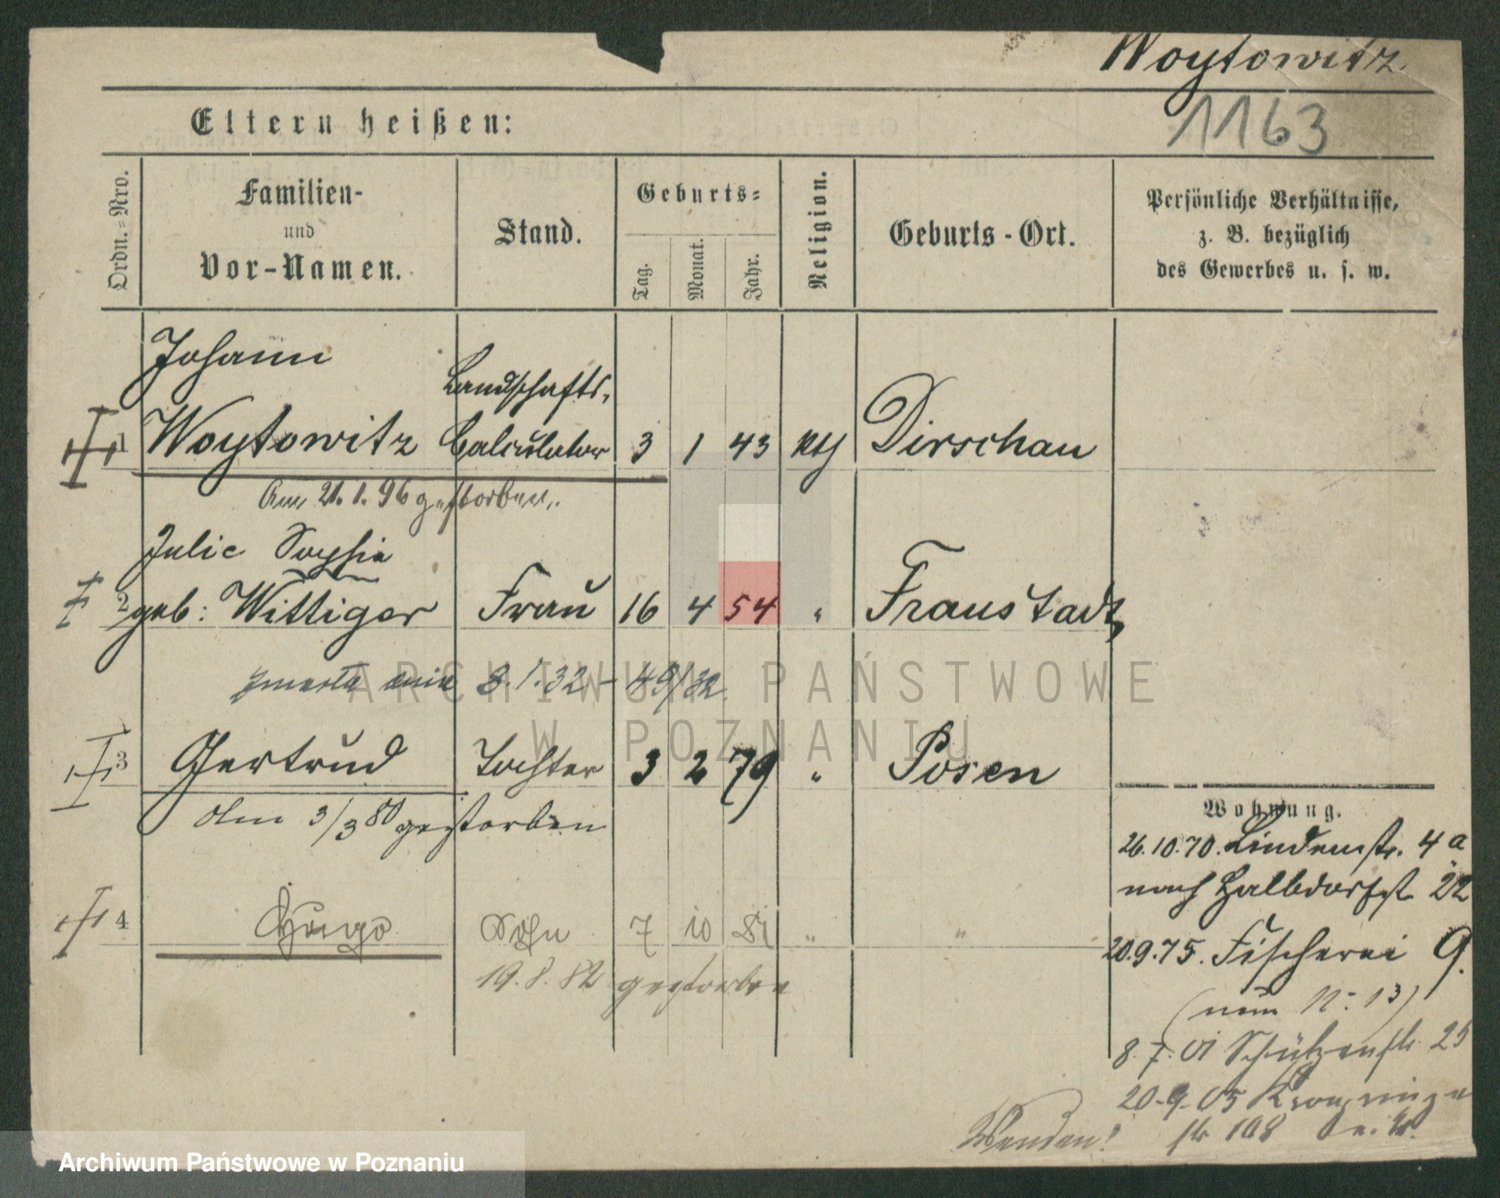 Woytowitz.
1163
Eltern heißen:
Ordn.-Nro.
Familien-
und
Vor-Namen.
Stand.
Geburts-
Tag.
Monat.
Jahr.
Religion.
Geburts-Ort.
Persönliche Verhältnisse,
z. B. bezüglich
des Gewerbes u. s. w.
Johann
Landschafts-
1 Woytowitz Calculator 3 1 43 kth Dirschau
Am 21.1.96 gestorben.
Julie Sophie
2 geb: Wittiger Frau 16 4 54 " Fraustadt
zmarła dnia 8.1.32 - 49/32.
ARCHIWUM PAŃSTWOWE
W POZNANIU
3 Gertrud Tochter 3 2 79 " Posen
Am 3/3 80 gestorben
4 Hugo Sohn 7 10 81 " "
19.8.82 gestorben
Wohnung.
26.10.70. Lindenstr. 4a
nach Halbdorfst 22
20.9.75. Fischerei 9.
(nun N: 13)
8.7.01 Schützenstr. 25
20.9.05 Kronprinzen
str 108
Wenden!
Archiwum Państwowe w Poznaniu